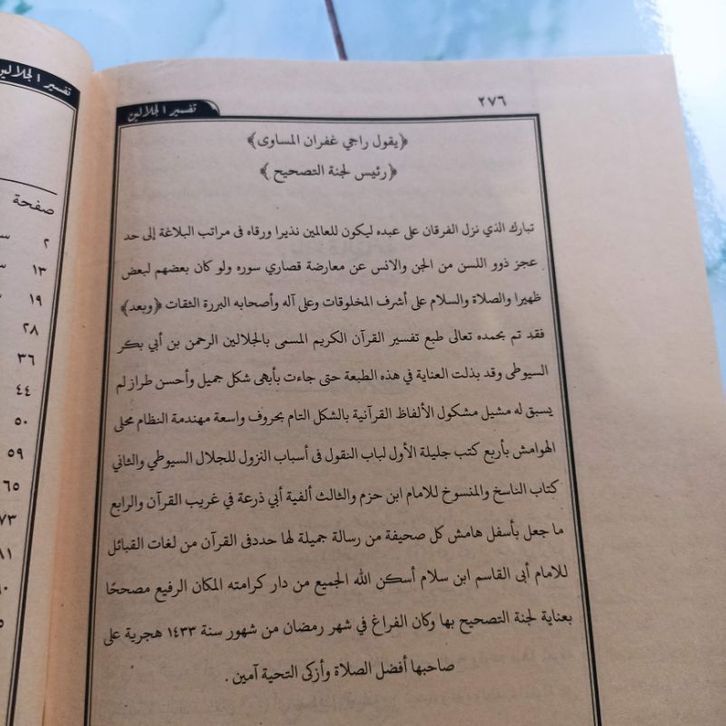 تفسير الجلالين
٢٧٦
تفسير الجلالين
﴿يقول راجي غفران المساوى﴾
﴿رئيس لجنة التصحيح﴾
تبارك الذي نزل الفرقان على عبده ليكون للعالمين نذيرا ورقاه فى مراتب البلاغة إلى حد
عجز ذوو اللسن من الجن والانس عن معارضة قصاري سوره ولو كان بعضهم لبعض
ظهيرا والصلاة والسلام على أشرف المخلوقات وعلى آله وأصحابه البررة الثقات ﴿وبعد﴾
فقد تم بحمده تعالى طبع تفسير القرآن الكريم المسمى بالجلالين الرحمن بن أبي بكر
السيوطى وقد بذلت العناية في هذه الطبعة حتى جاءت بأبهى شكل جميل وأحسن طراز لم
يسبق له مشيل مشكول الألفاظ القرآنية بالشكل التام بحروف واسعة مهندمة النظام محلى
الهوامش بأربع كتب جليلة الأول لباب النقول فى أسباب النزول للجلال السيوطي والثاني
كتاب الناسخ والمنسوخ للامام ابن حزم والثالث ألفية أبي ذرعة في غريب القرآن والرابع
ما جعل بأسفل هامش كل صحيفة من رسالة جميلة لها حددفى القرآن من لغات القبائل
للامام أبى القاسم ابن سلام أسكن الله الجميع من دار كرامته المكان الرفيع مصححًا
بعناية لجنة التصحيح بها وكان الفراغ في شهر رمضان من شهور سنة ١٤٣٣ هجرية على
صاحبها أفضل الصلاة وأزكى التحية آمين .
صفحة
٢
١٣
١٩
٢٨
٣٦
٤٤
٥٠
٥٩
٦٥